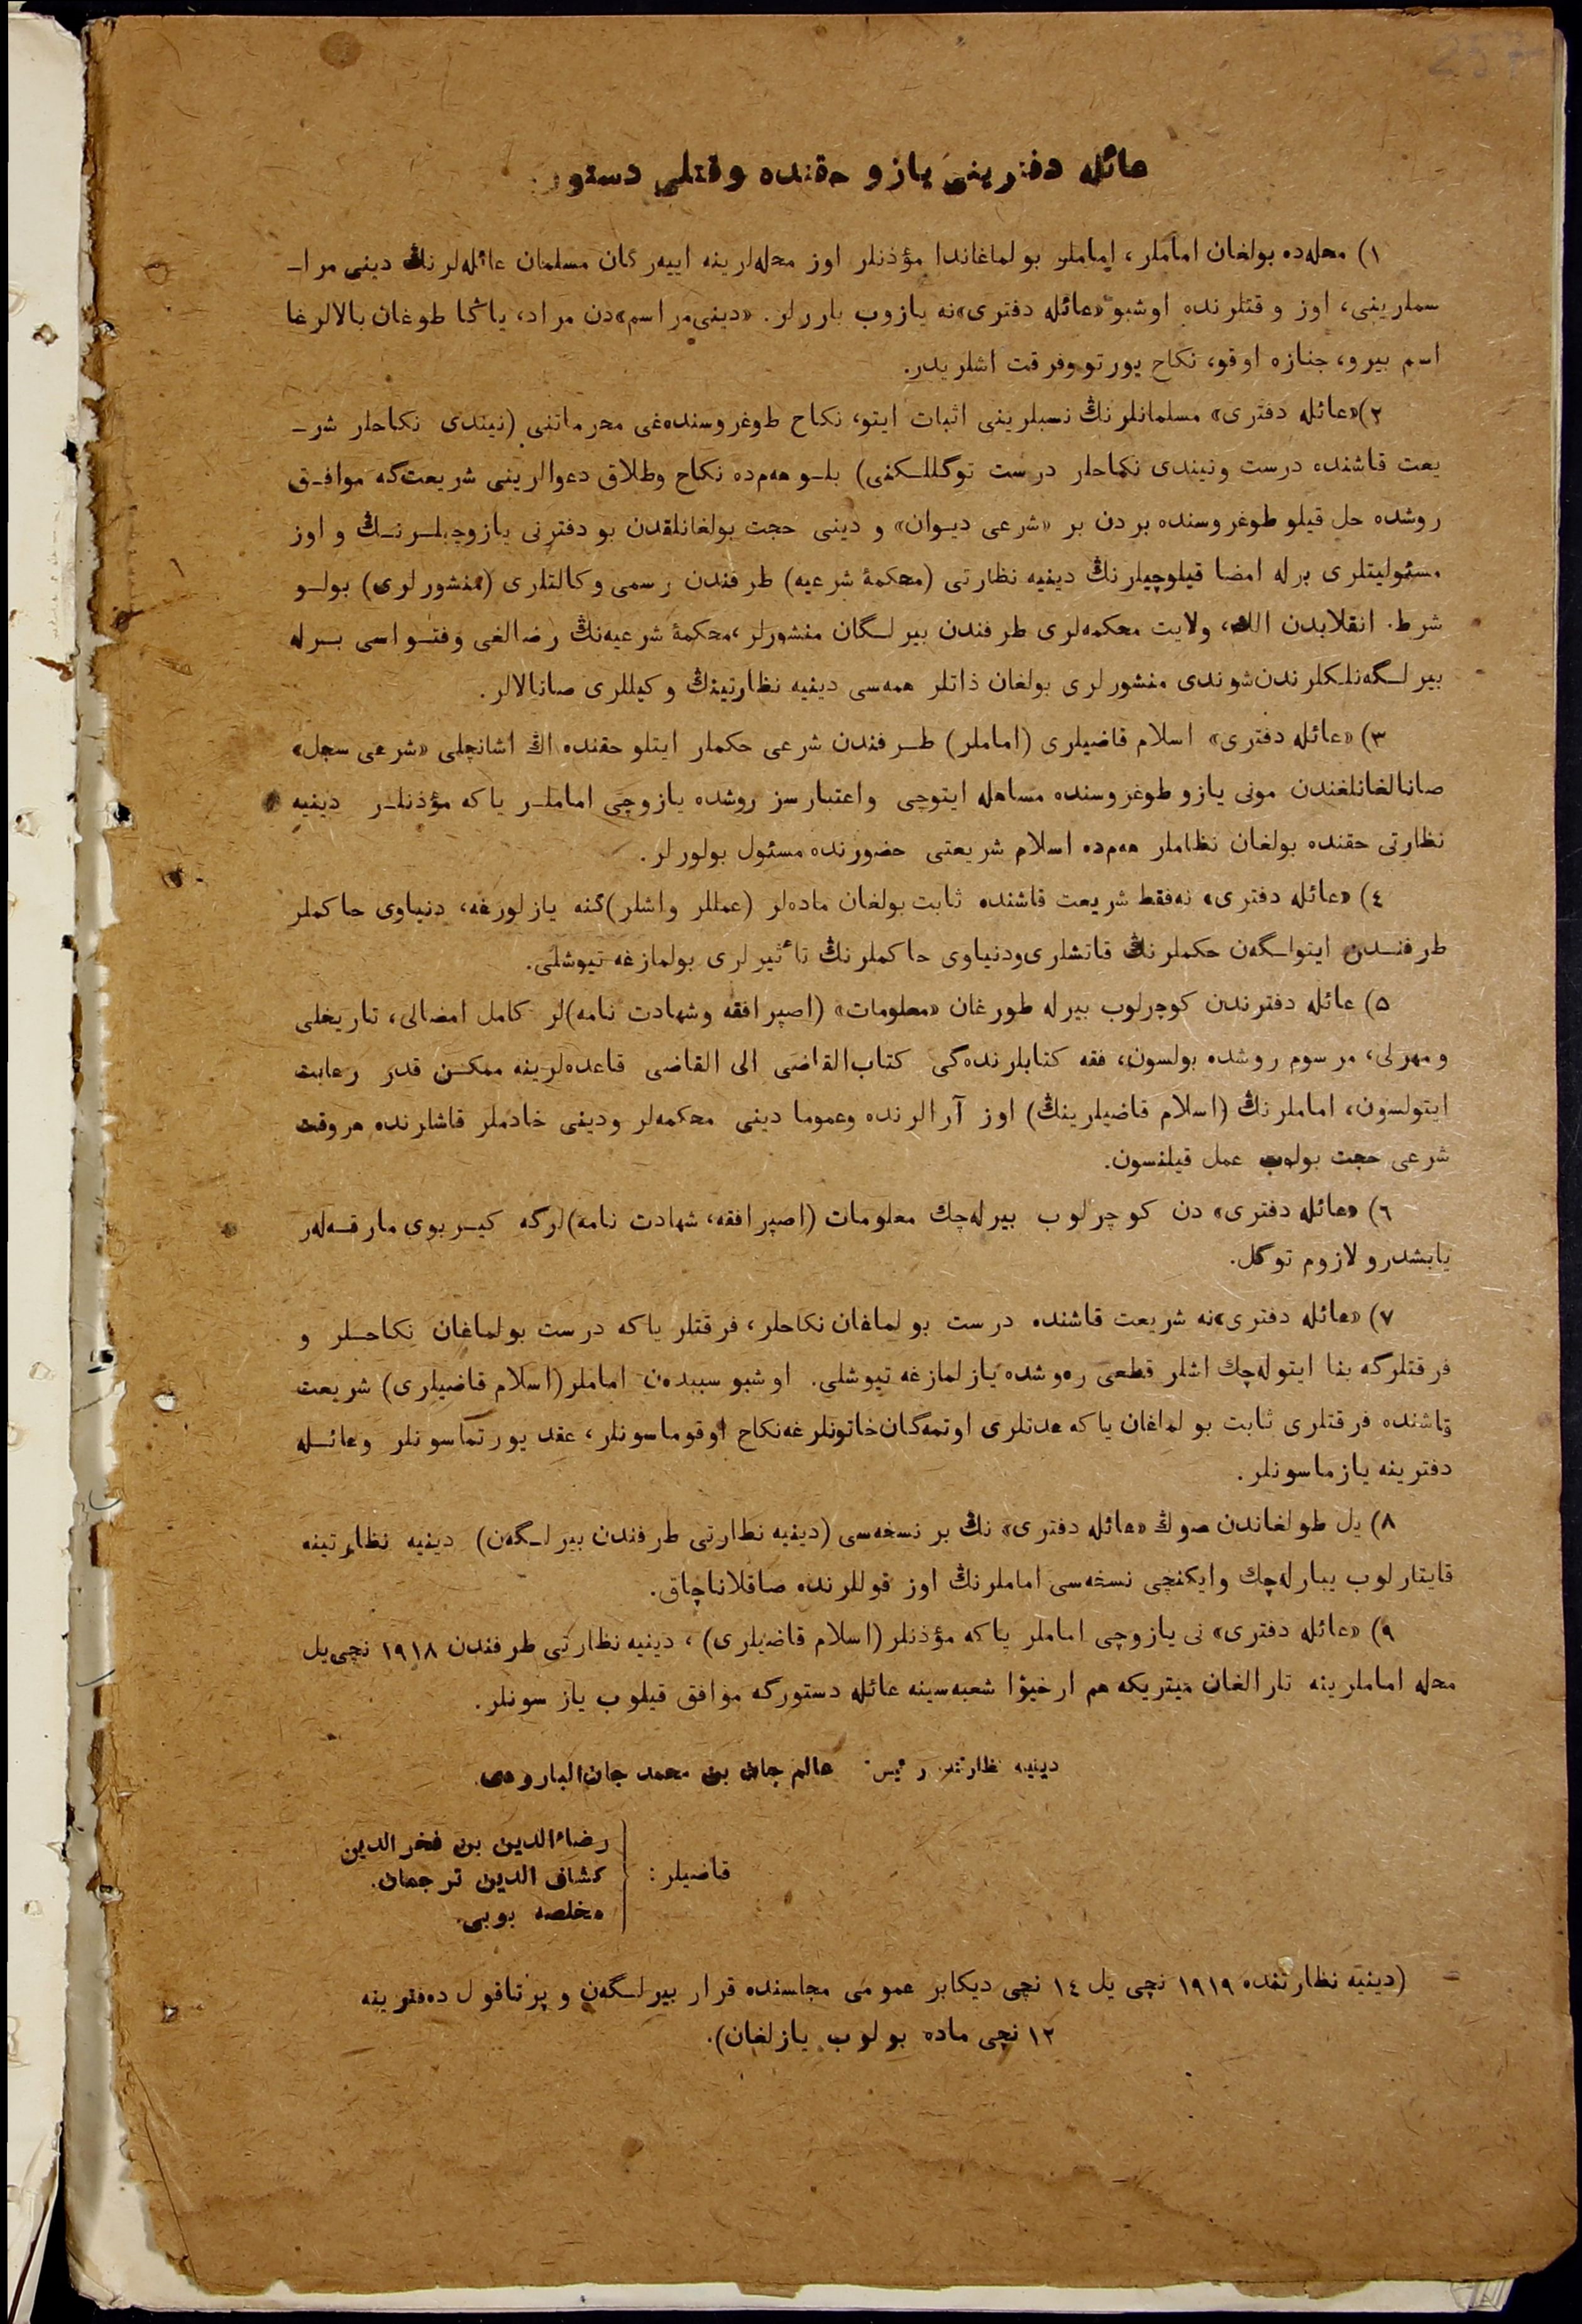 عائله دفترینی یازو حقنده وقتلی دستور.
١) محله‌ده بولغان اماملر، اماملر بولماغاندا مؤذنلر اوز محله‌لرینه اییه‌رگان مسلمان عائله‌لرنڭ دینی مرا‍ـ
سملرینی، اوز وقتلرنده اوشبو «عائله دفتری»نه یازوب باررلر. «دینی مراسم»دن مراد، یاڭا طوغان بالالرغا
اسم بیرو، جنازه اوقو، نکاح یورتو وفرقت اشلریدر.
٢) «عائله دفتری» مسلمانلرنڭ نسبلرینی اثبات ایتو، نکاح طوغروسنده‌غی محرماتنی (نیندی نکاحلر شرـ
یعت قاشنده درست ونیندی نکاحلر درست توگللـکنی) بلـو هم‌ده نکاح وطلاق دعوالرینی شریعت‌گه موافـق
روشده حل قیلو طوغروسنده بردن بر «شرعی دیـوان» و دینی حجت بولغانلقدن بو دفترنی یازوچیلـرنـڭ و اوز
مسئولیتلری برله امضا قیلوچیلرنڭ دینیه نظارتی (محکمۀ شرعیه) طرفندن رسمی وکالتلری (منشورلری) بولـو
شرط. انقلابدن الك، ولایت محکمه‌لری طرفندن بیرلـگان منشورلر، محکمۀ شرعیه‌نڭ رضالغی وفتـواسی بـرله
بیرلـگه‌نلکلرندن شوندی منشورلری بولغان ذاتلر همه‌سی دینیه نظارتینڭ وکیللری صانالالر.
٣) «عائله دفتری» اسلام قاضیلری (اماملر) طـرفندن شرعی حکملر ایتلو حقنده اڭ اشانچلی «شرعی سجل»
صانالغانلغندن مونی یازو طوغروسنده مساهله ایتوچی واعتبارسز روشده یازوچی اماملـر یاکه مؤذنلـر دینیه
نظارتی حقنده بولغان نظاملر هم‌ده اسلام شریعتی حضورنده مسئول بولورلر.
٤) «عائله دفتری» نه‌فقط شریعت قاشنده ثابت بولغان ماده‌لر (عمللر واشلر)گنه یازلورغه، دنیاوی حاکملر
طرفنـدن ایتولـگه‌ن حکملرنڭ قاتشلری‌ودنیاوی حاکملرنڭ تأثیرلری بولمازغه تیوشلی.
٥) عائله دفترندن کوچرلوب بیرله طورغان «معلومات» (اصپرافقه وشهادت نامه)لر کامل امضالی، تاریخلی
ومهرلی، مرسوم روشده بولسون، فقه کتابلرنده‌گی کتاب‌القاضی الی القاضی قاعده‌لرینه ممکـن قدر رعایت
ایتولسون، اماملرنڭ (اسلام قاضیلرینڭ) اوز آرالرنده وعموما دینی محکمه‌لر ودینی خادملر قاشلرنده هروقت
شرعی حجت بولوب عمل قیلنسون.
٦) «عائله دفتری» دن کوچرلوب بیرله‌چك معلومات (اصپرافقه، شهادت نامه)لرگه کیـربوی مارقـه‌لەر
یابشدرو لازوم توگل.
٧) «عائله دفتری»نه شریعت قاشنده درست بولماغان نکاحلر، فرقتلر یاکه درست بولماغان نکاحـلر و
فرقتلرگه بنا ایتوله‌چك اشلر قطعی ره‌وشده یازلمازغه تیوشلی. اوشبو سببدەن اماملر (اسلام قاضیلری) شریعت
قاشنده فرقتلری ثابت بولماغان یاکه عدتلری اوتمه‌گان خاتونلرغه نکاح اوقوماسونلر، عقد یورتماسونلر وعائـله
دفترینه یازماسونلر.
٨) یل طولغاندن صوڭ «عائله دفتری» نڭ بر نسخه‌سی (دینیه نظارتی طرفندن بیرلـگەن) دینیه نظارتینه
قایتارلوب یبارله‌چك وایکنچی نسخه‌سی اماملرنڭ اوز قوللرنده صاقلاناچاق.
٩) «عائله دفتری» نی یازوچی اماملر یاکه مؤذنلر (اسلام قاضیلری)، دینیه نظارتی طرفندن ١٩١٨ نچی یل
محله اماملرینه تارالغان میتریکه هم ارخیوا شعبه‌سینه عائله دستورگه موافق قیلوب یازسونلر.
دینیه نظارتی رئیسی عالم‌جان بن محمد جان البارودی.
قاضیلر:
رضاءالدین بن فخرالدین
کشاف الدین ترجمان.
مخلصه بوبی.
(دینیه نظارتنده ١٩١٩ نچی یل ١٤ نچی دیکابر عمومی مجلسنده قرار بیرلـگەن و پرتاقول دەفترینه
١٢ نچی ماده بولوب یازلغان).